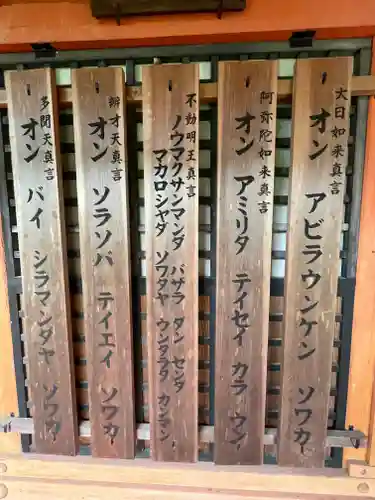 大日如来真言
オン アビラウンケン ソワカ
阿弥陀如来真言
オン アミリタ テイセイ カラ ウン
不動明王真言
ノウマクサンマンダ バザラ ダン センダ
マカロシャダ ソワタヤ ウンタラタ カンマン
辨才天真言
オン ソラソバ テイエイ ソワカ
多聞天真言
オン バイ シラマンダヤ ソワカ